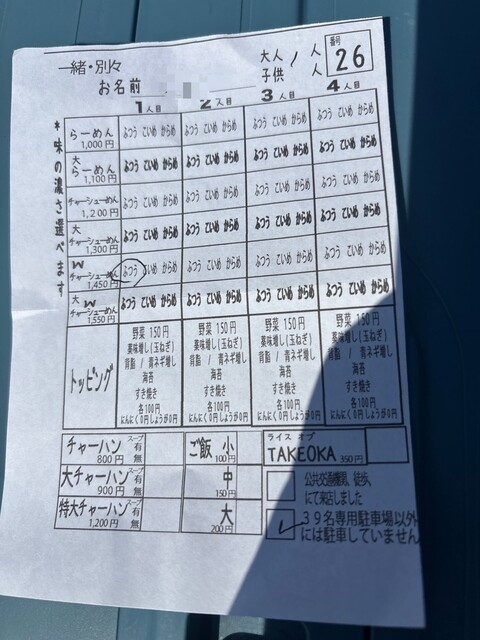 一緒・別々
大人 1 人
子供 人
番号
26
お名前
1人目 2人目 3人目 4人目
*味の濃さ選べます
らーめん
1,000円
ふつう こいめ からめ ふつう こいめ からめ ふつう こいめ からめ ふつう こいめ からめ
大
らーめん
1,100円
ふつう こいめ からめ ふつう こいめ からめ ふつう こいめ からめ ふつう こいめ からめ
チャーシューめん
1,200円
ふつう こいめ からめ ふつう こいめ からめ ふつう こいめ からめ ふつう こいめ からめ
大
チャーシューめん
1,300円
ふつう こいめ からめ ふつう こいめ からめ ふつう こいめ からめ ふつう こいめ からめ
W
チャーシューめん
1,450円
ふつう こいめ からめ ふつう こいめ からめ ふつう こいめ からめ ふつう こいめ からめ
大 W
チャーシューめん
1,550円
ふつう こいめ からめ ふつう こいめ からめ ふつう こいめ からめ ふつう こいめ からめ
トッピング
野菜 150円
薬味増し(玉ねぎ)
背脂 / 青ネギ増し
海苔
すき焼き
各100円
にんにく0円しょうが0円
野菜 150円
薬味増し(玉ねぎ)
背脂 / 青ネギ増し
海苔
すき焼き
各100円
にんにく0円しょうが0円
野菜 150円
薬味増し(玉ねぎ)
背脂 / 青ネギ増し
海苔
すき焼き
各100円
にんにく0円しょうが0円
野菜 150円
薬味増し(玉ねぎ)
背脂 / 青ネギ増し
海苔
すき焼き
各100円
にんにく0円しょうが0円
チャーハン
800円
スープ
有
無
大チャーハン
900円
スープ
有
無
特大チャーハン
1,200円
スープ
有
無
ご飯 小
100円
中
150円
大
200円
ライス オブ
TAKEOKA 350円
公共交通機関、徒歩、
にて来店しました
39名専用駐車場以外
には駐車していません